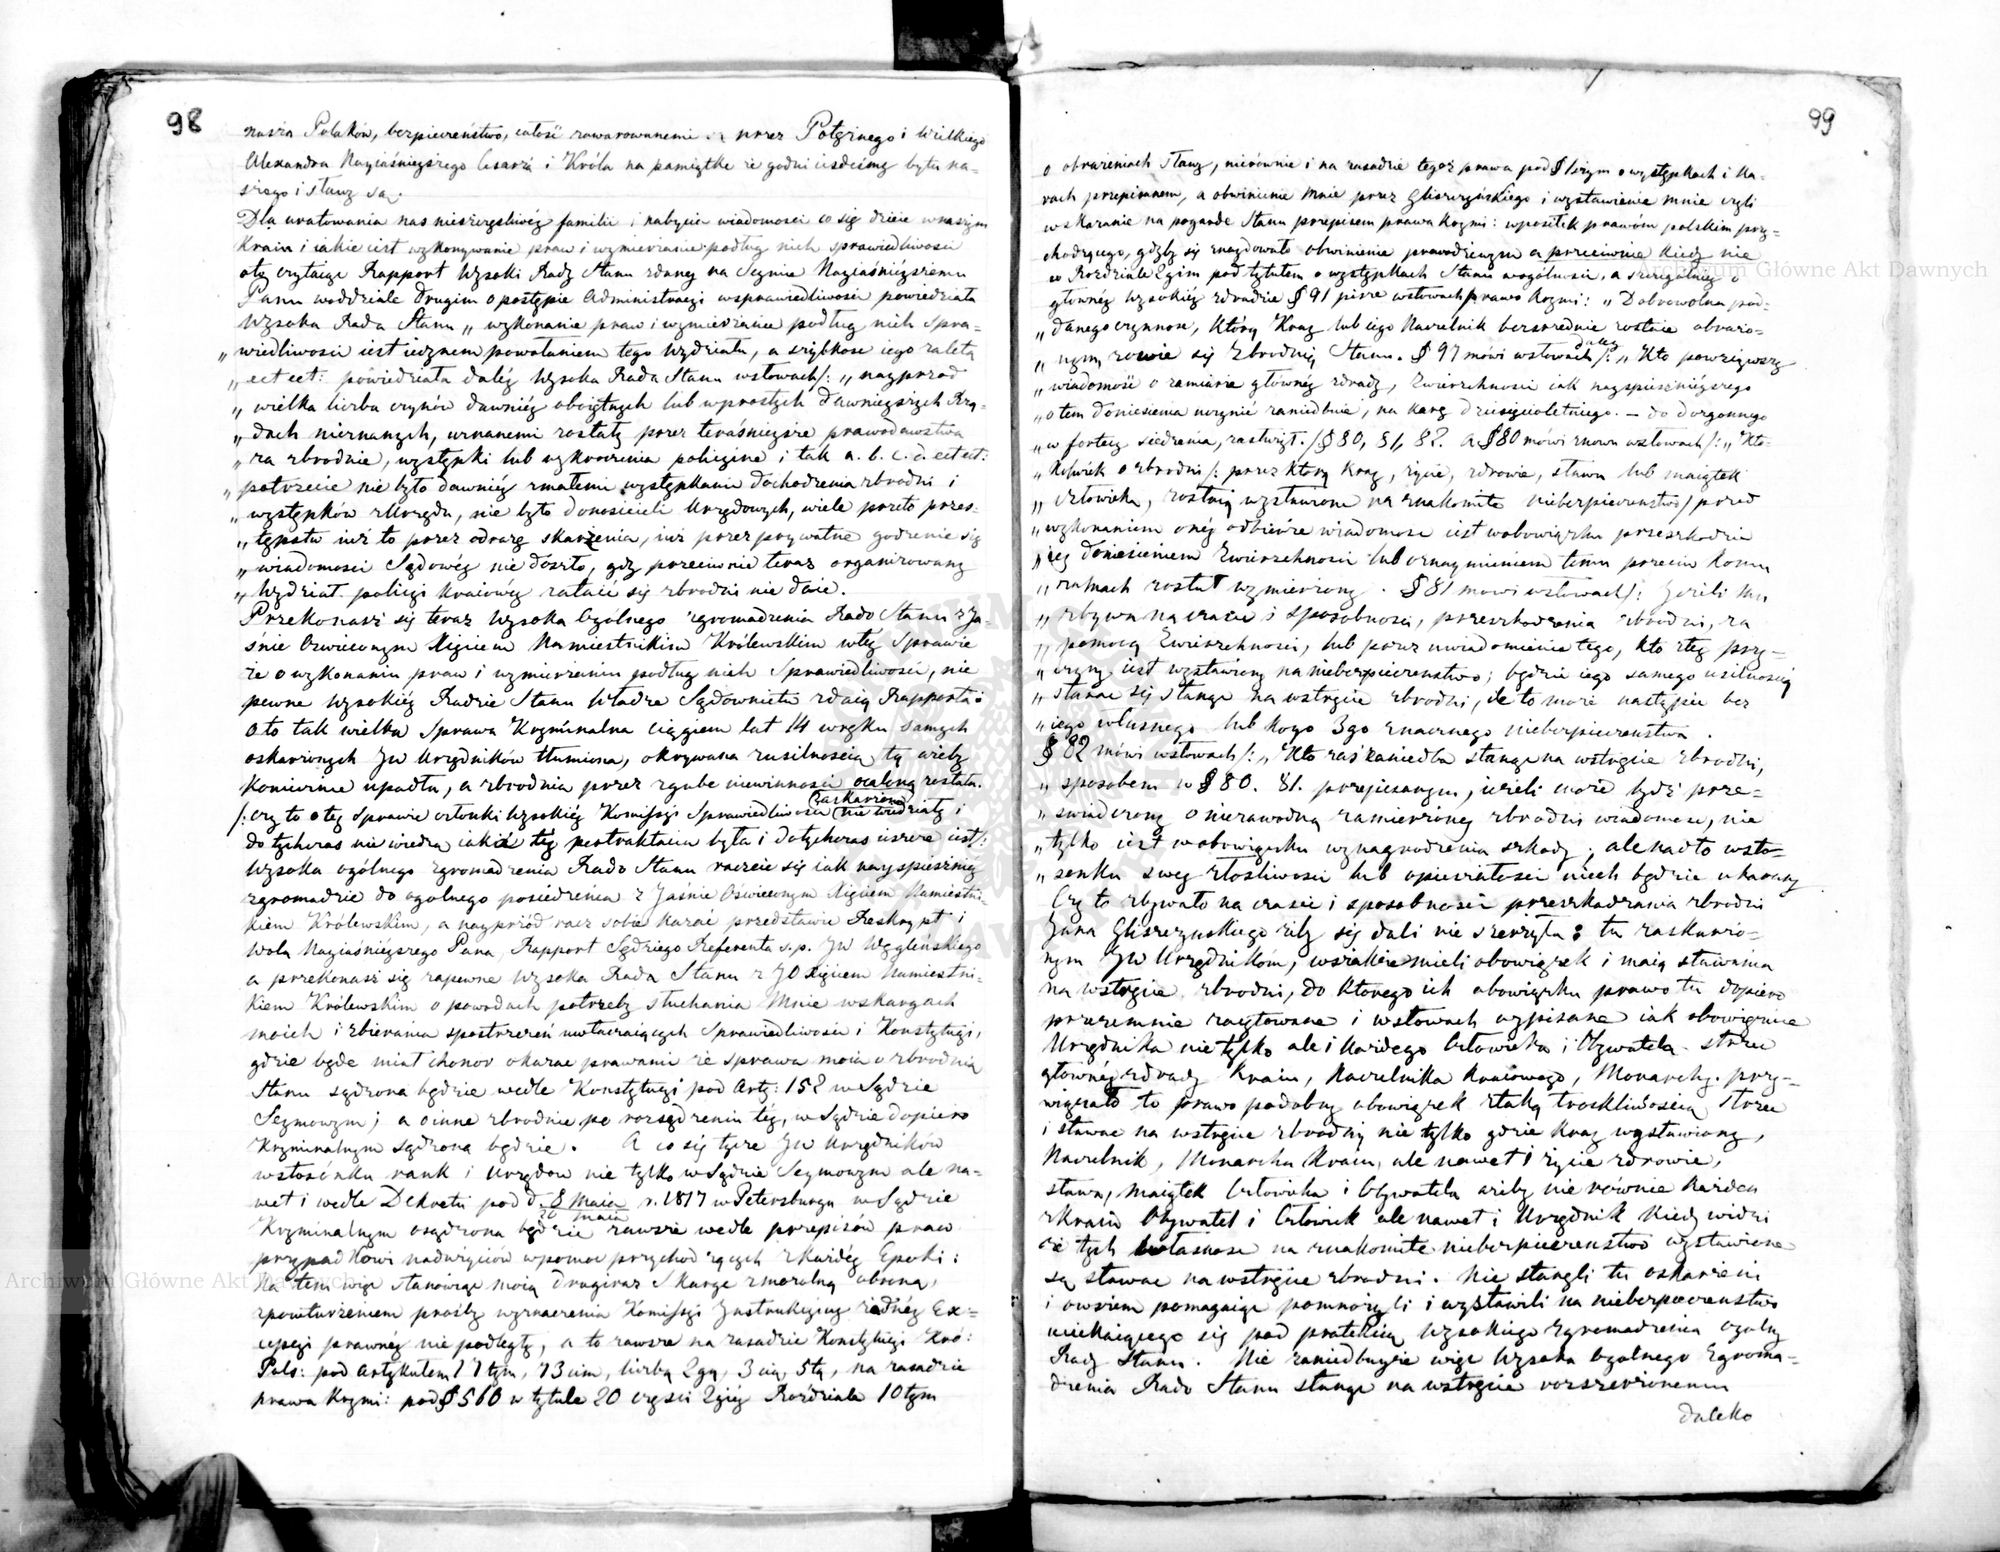 98
nasza Polaków, bezpieczeństwo, całość zawarowanemi są przez Potężnego i Wielkiego
Alexandra Nayiaśnieyszego Cesarza i Króla na pamiątkę że godni iesteśmy bytu na-
szego i sławy są.
Dla uratowania nas nieszczęśliwéy familii i nabycia wiadomości co się dzieie w naszym
Kraiu i iakie iest wykonywanie praw i wymierzanie podług nich sprawiedliwości
oty czytaiąc Rapport Wysoki Rady Stanu zdany na Seymie Nayiaśniéyszemu
Panu w oddziale drugim o postępie Administracyi w sprawiedliwości powiedziała
Wysoka Rada Stanu „ wykonanie praw i wymierzanie podług nich Spra-
„ wiedliwości iest iedynem powołaniem tego wydziału, a szybkość iego zaletą
„ ect ect: powiedziała daléy Wysoka Rada Stanu w słowach /: „ nayprzód
„ wielka liczba czynów dawniéy oboiętnych lub w prostych dawnieyszych Rzą-
„ dach nieznanych, uznanemi zostały przez teraźnieysze prawodawstwa
„ za zbrodnie, występki lub wykroczenia policyine i tak a. b. c. d. ect ect:
„ potrzecie nie było dawniéy zmałemi występkami dochodzenia zbrodni i
„ występków z Urzędu, nie było donosicieli Urzędowych, wiele przeto przes-
„ tępstw iuż to przez odrazę skarżenia, iuż przez prywatne godzenie się
„ wiadomości Sądowéy nie doszło, gdy przeciwnie teraz organizowany
„ Wydział policyi kraiowéy zataić się zbrodni nie daie.
Przekonasz się teraz Wysoka Ogólnego zgromadzenia Rado Stanu z Ja-
śnie Oświeconym Xięciem Namiestnikiem Królewskim w téy Sprawie
że o wykonaniu praw i wymierzaniu podług nich Sprawiedliwości, nie
pewne Wysokiéy Radzie Stanu Władze Sądownicze zdaią Rapporta:
oto tak wielka Sprawa Kryminalna ciągiem lat 14 w ręku samych
oskarżonych JW Urzędników tłumiona, okrywana z usilnością tą ażeby
koniecznie upadła, a zbrodnia przez zgubę niewinności ocaloną została.
/: czy to o téy Sprawie członki Wysokiéy Kommissyi Sprawiedliwości zaskarżone nie wiedziały i
dotychczas nie wiedzą iakiéi téy pertraktacia była i dotychczas ieszcze iest :/
Wysoka ogólnego zgromadzenia Rado Stanu raczcie się iak nayspieszniéy
zgromadzić do ogólnego posiedzenia z Jaśnie Oświeconym Xięciem Namiestni-
kiem Królewskim, a nayprzód racz sobie kazać przedstawić Reskrypt i
wolą Nayiaśniéyszego Pana, Rapport Sędziego Referenta s.p. JW Węgleńskiego
a przekonasz się zapewne Wysoka Rada Stanu z JO Xięciem Namiestni-
kiem Królewskim o powodach potrzeby słuchania Mnie w skargach
moich i zbierania spostrzeżeń uwłaczaiących Sprawiedliwości i Konstytucyi,
gdzie będę miał honor okazać prawami że sprawa moia o zbrodnią
Stanu sądzona będzie wedle Konstytucyi pod Arty: 152 w Sądzie
Seymowym; a o inne zbrodnie po rozsądzeniu téy, w Sądzie dopiero
Kryminalnym sądzona będzie. A co się tycze JW Urzędników
w stosónku rank i Urzędów nie tylko w Sądzie Seymowym ale na-
wet i wedle Dekretu pod d. 8 Maia r. 1817 w Petersburgu w Sądzie
Kryminalnym osądzona będzie zawsze wedle przepisów praw
przypadkowi nadużyciów w pomoc przychodzących z każdéy Epoki:
Na tem więc stanowię moią drugiraz Skargę z moralną obroną,
z powtórzeniem prośby wyznaczenia Komissyi Instrukcyiney żadnéy Ex-
cepcyi prawnéy nie podległy, a to zawsze na zasadzie Konstytucyi Kró:
Pols: pod Artykułem 17 tym, 73 cim, liczbą 2gą, 3 cią, 5tą, na zasadzie
prawa Krymi: pod § 560 w tytule 20 części 2giéy Rozdziale 10 tym
99
o obrażeniach Sławy, nierównie i na zasadzie tegoż prawa pod § 1szym o występkach i ka-
rach przepisanem, a obwinienie mnie przez Gliszczyńskiego i wystawienie mnie czyli
wskazanie na pogardę Stanu przepisem prawa Krymi: w posiłek prawóm polskim przy-
chodzącego, gdyby się znaydowało obwinienie prawdziwym a przeciwnie kiedy nie
w Rozdziale 2gim pod tytułem o występkach Stanu w ogólności, a szczególniéy o
głównéy Wysokiéy zdradzie § 91 pisze w słowach prawo Krymi: „ Dobrowolna pod-
„ danego czynność, którą Kray lub iego Naczelnik bezsrednie zostaie obrażo-
„ nym, zowie się Zbrodnią Stanu. § 97 mówi w słowach daléy /: „ Kto powziąwszy
„ wiadomość o zamiarze głównéy zdrady, Zwierzchności iak nayspieszniéyszego
„ o tem doniesienia uczynić zaniedbuie, na karę dziesięcioletniego. — do dozgonnego
„ w fortecy siedzenia, zasłużył. /§ 80, 81, 82. A § 80 mówi znowu w słowach /: „ Kto-
„ kolwiek o zbrodni /: przez którą Kray, życie, zdrowie, sława lub maiątek
„ człowieka, zostaią wystawione na znakomite niebezpieczeństwo / przed
„ wykonaniem onéy odbierze wiadomość iest w obowiązku przeszkodzić
„ iéy doniesieniem Zwierzchności lub oznaymieniem temu przeciw komu
„ zamach został wymierzony. § 81 mówi w słowach /: Jeżeli mu
„ zbywa na czasie i sposobności, przeszkodzenia zbrodni, za
„ pomocą Zwierzchności, lub przez uwiadomienie tego, kto z téy przy-
„ czyny iest wystawiony na niebezpieczeństwo; będzie iego samego usilnością
„ starać się stanąć na wstręcie zbrodni, ile to może nastąpić bez
„ iego własnego lub kogo 3go znacznego niebezpieczeństwa.
§ 82 mówi w słowach /: „ Kto zaś kaniedba stanąć na wstręcie zbrodni,
„ sposobem w § 80. 81. przepisanym, ieżeli może bydź prze-
„ świadczony o niezawodną zamierzonéy zbrodni wiadomość, nie
„ tylko iest w obowiązku wynagrodzenia szkody; ale nadto w sto-
„ sunku swéy złośliwości lub opieszałości niech będzie ukarany
Czy to zbywało na czasie i sposobności przeszkadzania zbrodni
Jana Gliszczyńskiego żeby się dali nie szerzyła: tu zaskarżo-
nym JW Urzędnikóm, wszakże mieli obowiązek i maią stawania
na wstręcie zbrodni, do którego ich obowiązku prawo tu dopiero
przezemnie zacytowane i w słowach wypisane iak obowiązuie
Urzędnika nie tylko ale i każdego Człowieka i Obywatela strzec
głównéy zdrady Kraiu, Naczelnika Kraiowego, Monarchy. przy-
wiązało to prawo podobny obowiązek z taką troskliwością strzec
i stawać na wstręcie zbrodni nie tylko gdzie Kray wystawiony,
Naczelnik, Monarcha Kraiu, ale nawet i życie zdrowie,
sława, maiątek Człowieka i Obywatela ażeby nie równie każden
z kraiu Obywatel i Człowiek ale nawet i Urzędnik kiedy widzi
że tych własność na znakomite niebezpieczeństwo wystawione
są stawać na wstręcie zbrodni. Nie stanęli tu oskarżeni
i owszem pomagaiąc pomnożyli i wystawili na niebezpieczeństwo
uciekaiącego się pod protekcią Wysokiego Zgromadzenia ogólny
Rady Stanu. Nie zaniedbuycie więc Wysoka Ogólnego Zgroma-
dzenia Rado Stanu stanąć na wstręcie rozszerzonemu
daleko
Archiwum Główne Akt Dawnych
Archiwum Główne Akt Dawnych